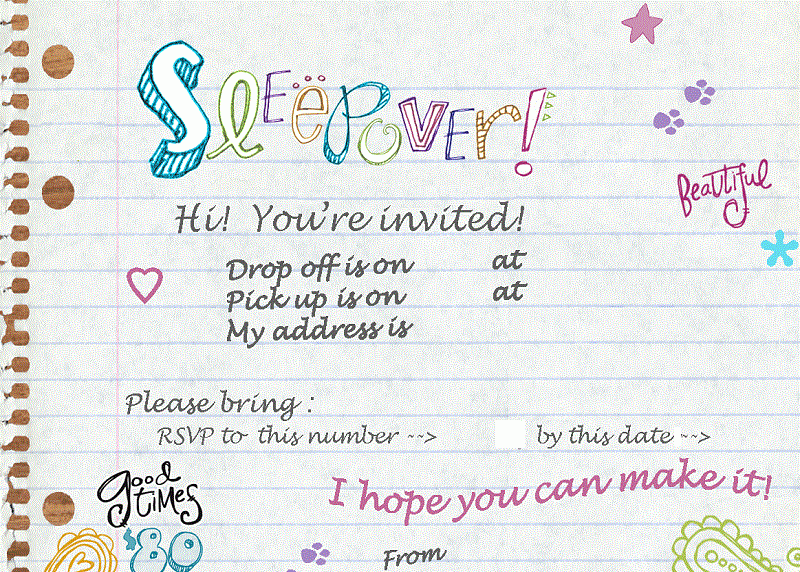 SLEEPOVER!
Beautiful
Hi! You're invited!
Drop off is on at
Pick up is on at
My address is
Please bring :
RSVP to this number ~~> by this date ~~>
good times
I hope you can make it!
'80
From